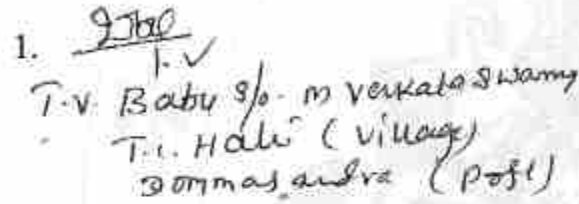 1.
T.V
T.V. Babu S/o. M Venkata Swamy
T.C. Halli (Village)
Dommasandra (Post)